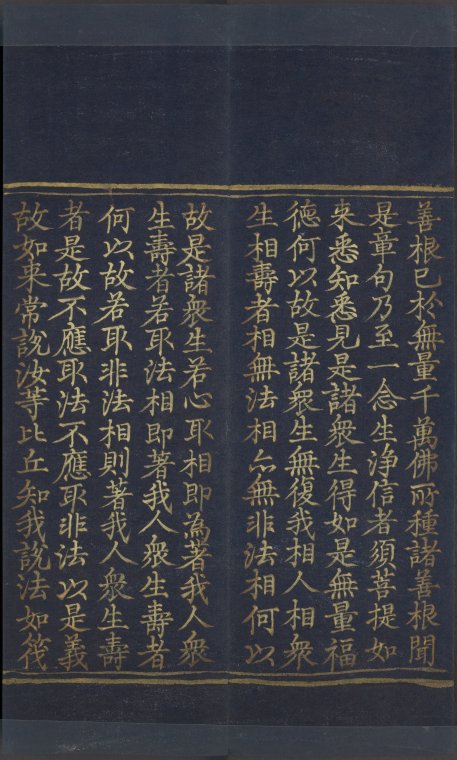 善根已於無量千萬佛所種諸善根聞
是章句乃至一念生净信者須菩提如
来悉知悉見是諸衆生得如是無量福
德何以故是諸衆生無復我相人相衆
生相壽者相無法相亦無非法相何以
故是諸衆生若心取相即為著我人衆
生壽者若取法相即著我人衆生壽者
何以故若取非法相則著我人衆生壽
者是故不應取法不應取非法以是義
故如来常說汝等比丘知我說法如筏